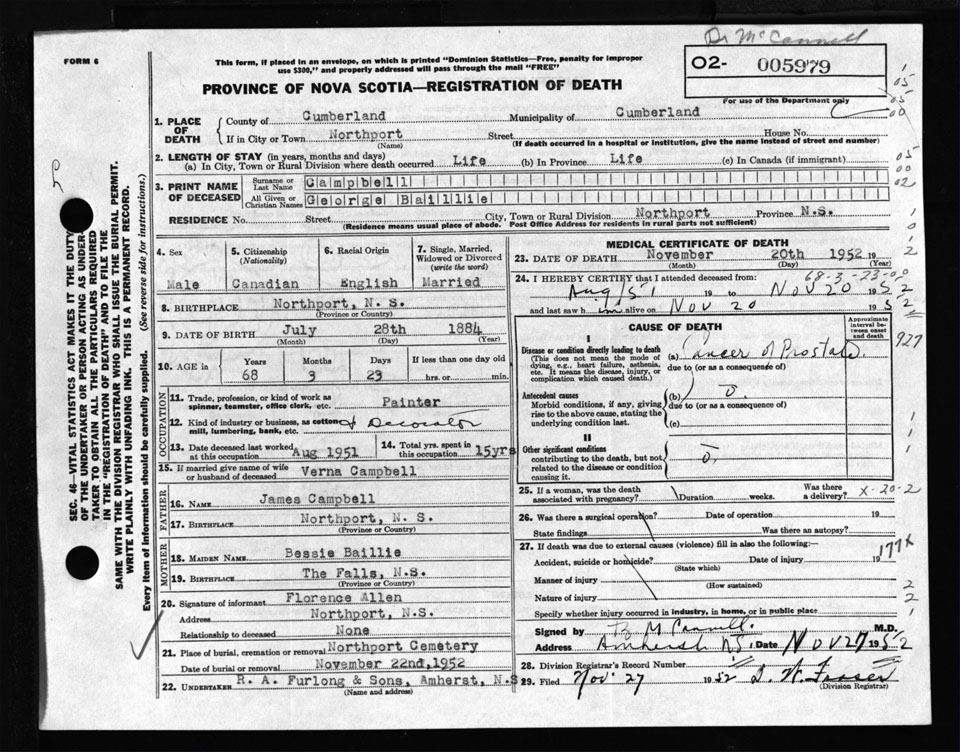 Dr McConnell
FORM 6
This form, if placed in an envelope, on which is printed "Dominion Statistics—Free, penalty for improper
use $300," and properly addressed will pass through the mail "FREE"
O2- 005979
For use of the Department only
PROVINCE OF NOVA SCOTIA—REGISTRATION OF DEATH
1. PLACE OF DEATH
County of Cumberland Municipality of Cumberland
If in City or Town Northport Street House No.
(Name) (If death occurred in a hospital or institution, give the name instead of street and number)
2. LENGTH OF STAY (in years, months and days)
(a) In City, Town or Rural Division where death occurred Life (b) In Province Life (c) In Canada (if immigrant)
3. PRINT NAME OF DECEASED
Surname or Last Name Campbell
All Given or Christian Names George Baillie
RESIDENCE No. Street City, Town or Rural Division Northport Province N.S.
(Residence means usual place of abode. Post Office Address for residents in rural parts not sufficient)
4. Sex Male
5. Citizenship (Nationality) Canadian
6. Racial Origin English
7. Single, Married, Widowed or Divorced (write the word) Married
8. BIRTHPLACE Northport, N. S.
(Province or Country)
9. DATE OF BIRTH July 28th 1884
(Month) (Day) (Year)
10. AGE in Years 68 Months 3 Days 23 If less than one day old hrs. or min.
OCCUPATION
11. Trade, profession, or kind of work as spinner, teamster, office clerk, etc. Painter
12. Kind of industry or business, as cotton mill, lumbering, bank, etc. & Decorator
13. Date deceased last worked at this occupation Aug 1951
14. Total yrs. spent in this occupation 15yrs
15. If married give name of wife or husband of deceased Verna Campbell
FATHER
16. NAME James Campbell
17. BIRTHPLACE Northport, N. S.
(Province or Country)
MOTHER
18. MAIDEN NAME Bessie Baillie
19. BIRTHPLACE The Falls, N.S.
(Province or Country)
20. Signature of informant Florence Allen
Address Northport, N.S.
Relationship to deceased None
21. Place of burial, cremation or removal Northport Cemetery
Date of burial or removal November 22nd, 1952
22. UNDERTAKER R. A. Furlong & Sons, Amherst, N.S
(Name and address)
MEDICAL CERTIFICATE OF DEATH
23. DATE OF DEATH November 20th 1952 19
(Month) (Day) (Year)
68-3-23-00
24. I HEREBY CERTIFY that I attended deceased from:
Aug 151 19 to Nov 20 1952
and last saw him alive on Nov 20 1952
CAUSE OF DEATH
Approximate interval between onset and death
I
Disease or condition directly leading to death (a) Cancer of Prostate.
(This does not mean the mode of dying, e.g., heart failure, asthenia, etc. It means the disease, injury, or complication which caused death.)
due to (or as a consequence of)
Antecedent causes (b) 0.
Morbid conditions, if any, giving rise to the above cause, stating the underlying condition last.
due to (or as a consequence of)
(c)
II
Other significant conditions 0.
contributing to the death, but not related to the disease or condition causing it.
927
25. If a woman, was the death associated with pregnancy? Duration weeks. Was there a delivery? X-20-2
26. Was there a surgical operation? Date of operation 19
State findings Was there an autopsy?
27. If death was due to external causes (violence) fill in also the following:—
Accident, suicide or homicide? Date of injury 19
(State which)
177X
Manner of injury
(How sustained)
Nature of injury
Specify whether injury occurred in industry, in home, or in public place
Signed by McConnell. M.D.
Address Amherst N.S. Date Nov 27 1952
28. Division Registrar's Record Number
29. Filed Nov. 27 1952 Fraser
(Division Registrar)
SEC. 46—VITAL STATISTICS ACT MAKES IT THE DUTY
OF THE UNDERTAKER OR PERSON ACTING AS UNDERTAKER TO OBTAIN ALL THE PARTICULARS REQUIRED
IN THE "REGISTRATION OF DEATH" AND TO FILE THE
SAME WITH THE DIVISION REGISTRAR WHO SHALL ISSUE THE BURIAL PERMIT.
WRITE PLAINLY WITH UNFADING INK. THIS IS A PERMANENT RECORD.
Every item of Information should be carefully supplied. (See reverse side for instructions.)